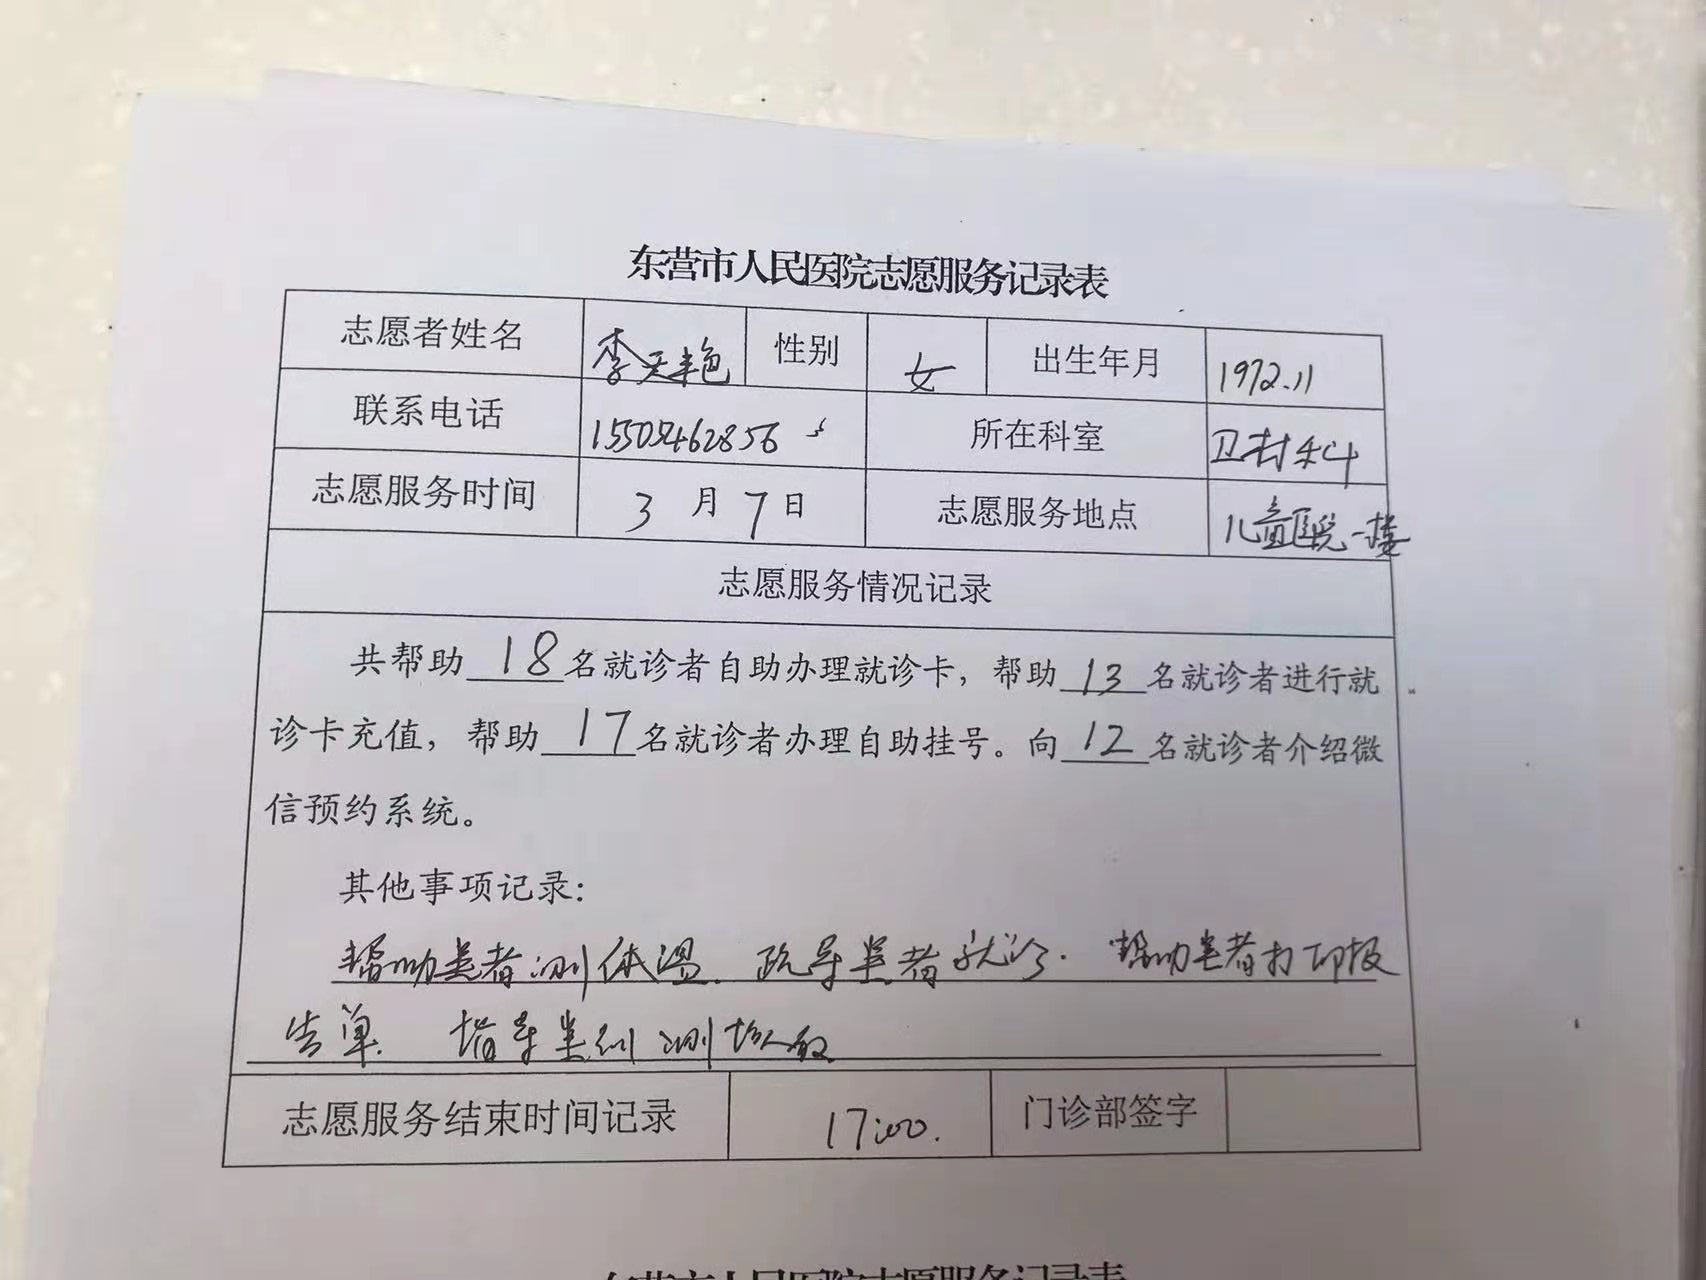 东营市人民医院志愿服务记录表
志愿者姓名 李天艳 性别 女 出生年月 1972.11
联系电话 15505462856 所在科室 卫材科
志愿服务时间 3月7日 志愿服务地点 儿童医院一楼
志愿服务情况记录
共帮助18名就诊者自助办理就诊卡，帮助13名就诊者进行就
诊卡充值，帮助17名就诊者办理自助挂号。向12名就诊者介绍微
信预约系统。
其他事项记录：
帮助患者测体温、疏导患者就诊、帮助患者打印报
告单、指导患者到
志愿服务结束时间记录 17:00. 门诊部签字
东营市人民医院志愿服务记录表